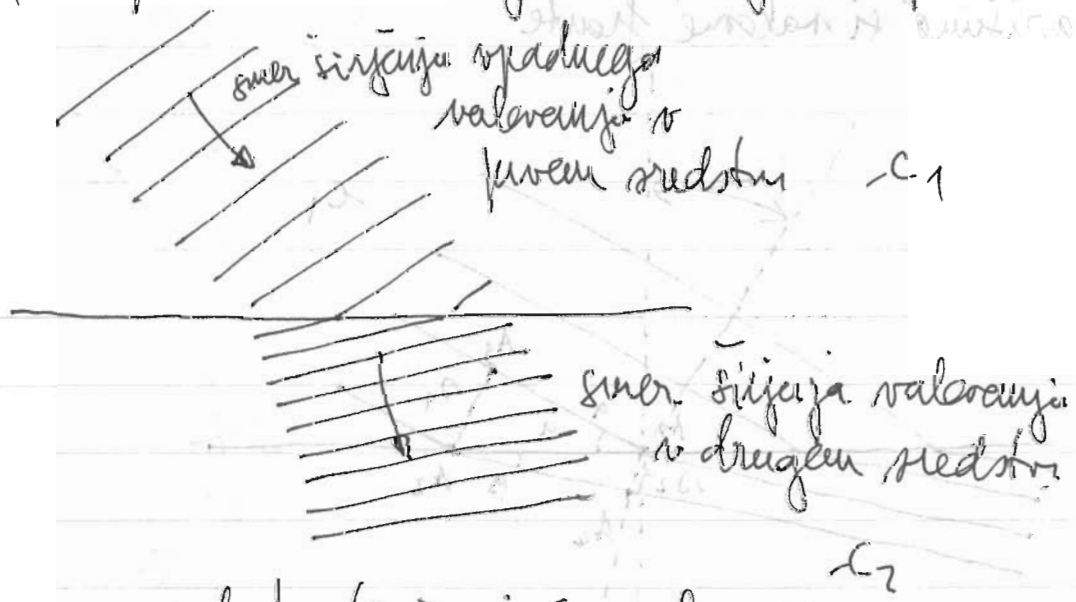 smer širjenja vpadnega
valovanja v
prvem sredstvu c1
smer širjenja valovanja
v drugem sredstvu
c2